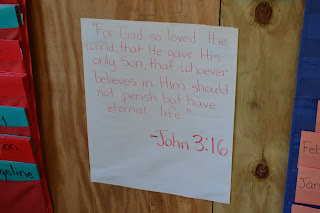 "For God so loved the
world that He gave His
only Son, that whoever
believes in Him should
not perish but have
eternal life"
-John 3:16
Feb
Jan